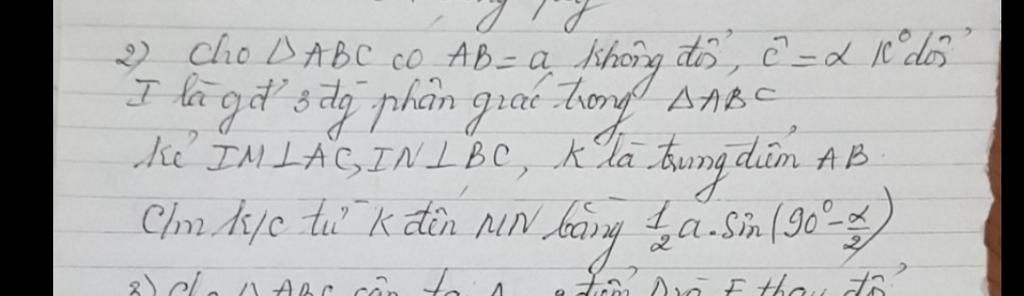 2) Cho △ABC có AB = a không đổi, ĉ = α k° đổi
I là gđ' 3 đg phân giác trong △ABC
kẻ IM⊥AC, IN⊥BC, K là trung điểm AB.
C/m k/c từ K đến MN bằng 1/2 a.sin(90° - α/2)
3) Cho △ABC cân